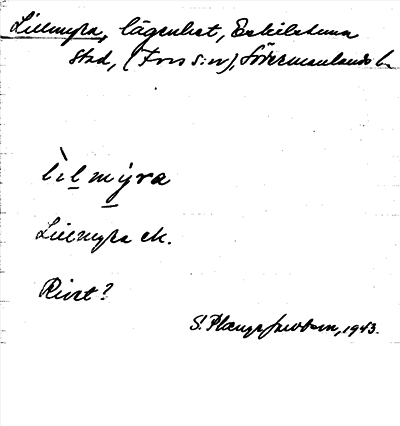 Lillmyra, lägenhet, Eskilstuna
stad, (Fors s:n), Södermanlands l.
lìlmýra
Lillmyra ek.
Rivet?
S. Plænge Jacobson, 1943.